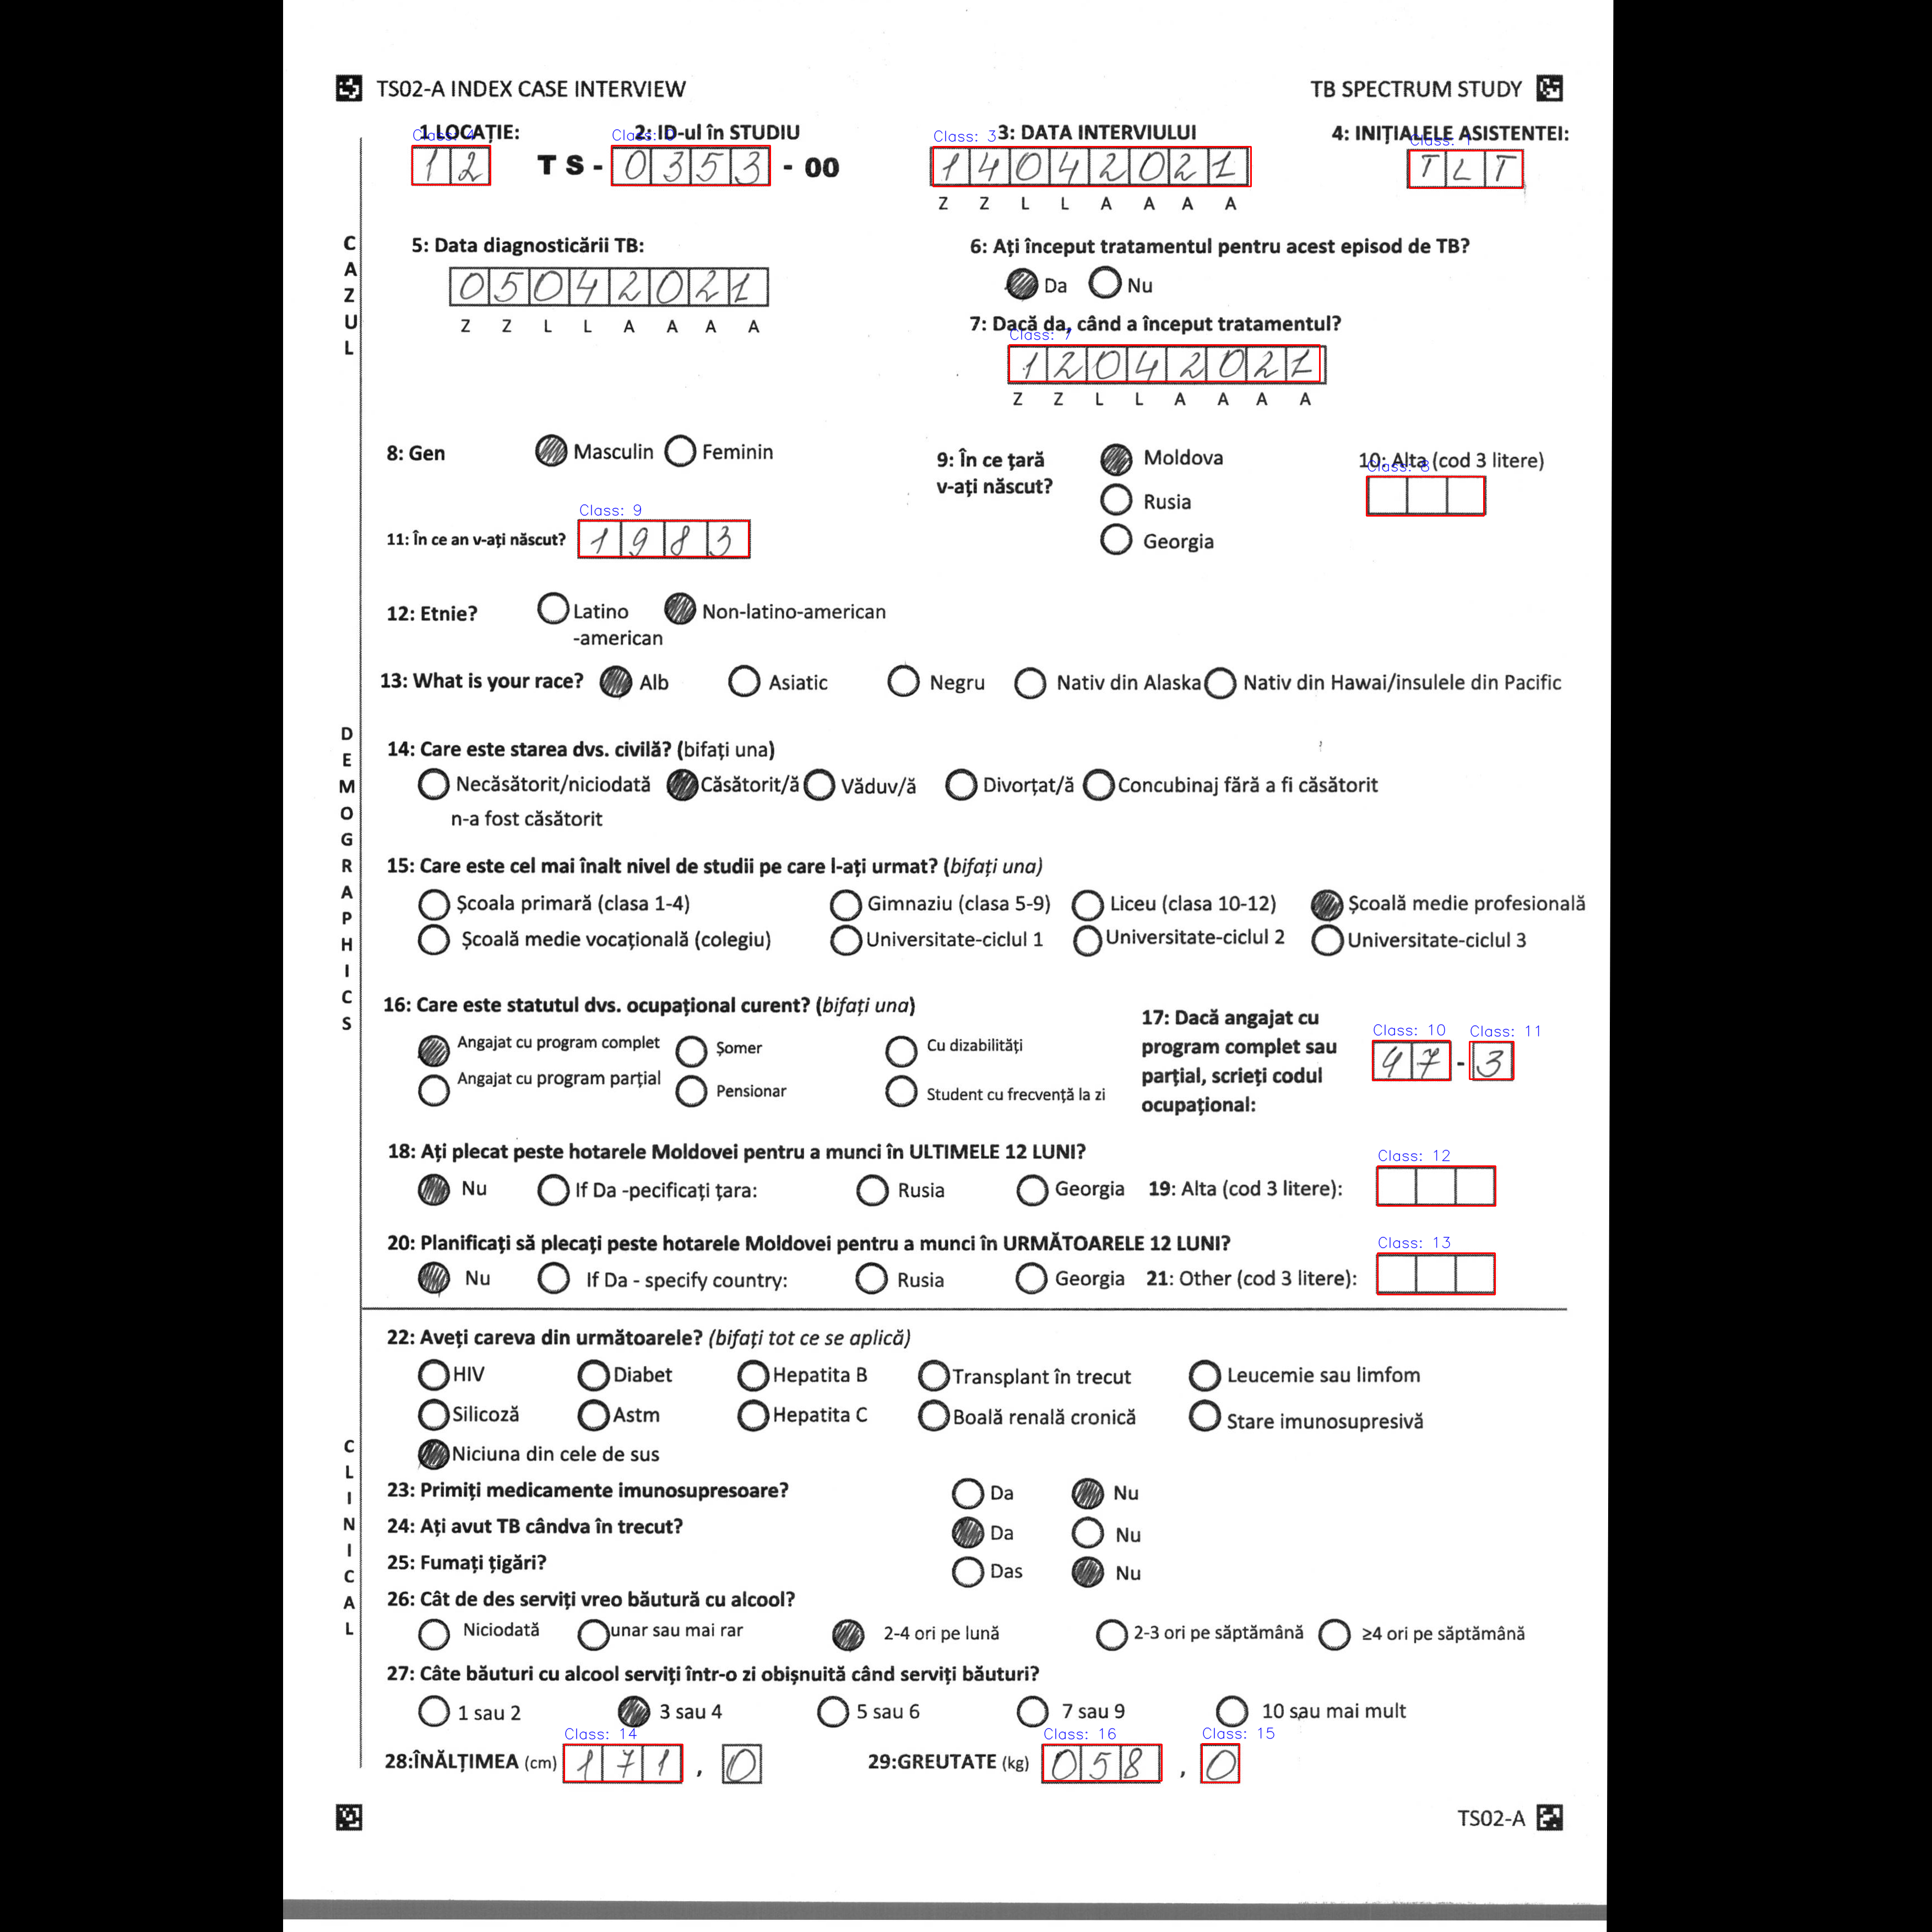 TS02-A INDEX CASE INTERVIEW TB SPECTRUM STUDY
1 LOCAȚIE: 2: ID-ul în STUDIU 3: DATA INTERVIULUI 4: INIȚIALELE ASISTENTEI:
Class: 4 Class: 0 Class: 3 Class: 1
12 TS- 0353 - 00 14042021 TLT
Z Z L L A A A A
CAZUL
5: Data diagnosticării TB: 6: Ați început tratamentul pentru acest episod de TB?
05042021 Da Nu
Z Z L L A A A A
7: Dacă da, când a început tratamentul?
Class: 7
12042021
Z Z L L A A A A
DEMOGRAPHICS
8: Gen Masculin Feminin
9: În ce țară v-ați născut? Moldova
Rusia
Georgia
10: Alta (cod 3 litere)
Class: 8
Class: 9
11: În ce an v-ați născut? 1983
12: Etnie? Latino -american Non-latino-american
13: What is your race? Alb Asiatic Negru Nativ din Alaska Nativ din Hawai/insulele din Pacific
14: Care este starea dvs. civilă? (bifați una)
Necăsătorit/niciodată Căsătorit/ă Văduv/ă Divorțat/ă Concubinaj fără a fi căsătorit
n-a fost căsătorit
15: Care este cel mai înalt nivel de studii pe care l-ați urmat? (bifați una)
Școala primară (clasa 1-4) Gimnaziu (clasa 5-9) Liceu (clasa 10-12) Școală medie profesională
Școală medie vocațională (colegiu) Universitate-ciclul 1 Universitate-ciclul 2 Universitate-ciclul 3
16: Care este statutul dvs. ocupațional curent? (bifați una)
Angajat cu program complet Șomer Cu dizabilități
Angajat cu program parțial Pensionar Student cu frecvență la zi
17: Dacă angajat cu
program complet sau
parțial, scrieți codul
ocupațional:
Class: 10 Class: 11
47 - 3
18: Ați plecat peste hotarele Moldovei pentru a munci în ULTIMELE 12 LUNI?
Class: 12
Nu If Da -pecificați țara: Rusia Georgia 19: Alta (cod 3 litere):
20: Planificați să plecați peste hotarele Moldovei pentru a munci în URMĂTOARELE 12 LUNI?
Class: 13
Nu If Da - specify country: Rusia Georgia 21: Other (cod 3 litere):
CLINICAL
22: Aveți careva din următoarele? (bifați tot ce se aplică)
HIV Diabet Hepatita B Transplant în trecut Leucemie sau limfom
Silicoză Astm Hepatita C Boală renală cronică Stare imunosupresivă
Niciuna din cele de sus
23: Primiți medicamente imunosupresoare? Da Nu
24: Ați avut TB cândva în trecut? Da Nu
25: Fumați țigări? Das Nu
26: Cât de des serviți vreo băutură cu alcool?
Niciodată unar sau mai rar 2-4 ori pe lună 2-3 ori pe săptămână ≥4 ori pe săptămână
27: Câte băuturi cu alcool serviți într-o zi obișnuită când serviți băuturi?
1 sau 2 3 sau 4 5 sau 6 7 sau 9 10 sau mai mult
Class: 14 Class: 16 Class: 15
28:ÎNĂLȚIMEA (cm) 171 , 0 29:GREUTATE (kg) 058 , 0
TS02-A